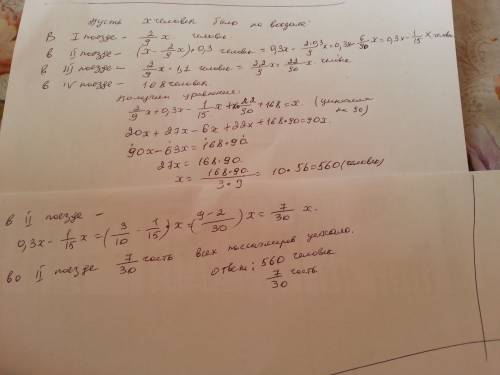 Пусть x человек было на вокзале.
В I поезде - 2/9 x человек
в II поезде - (x - 2/9 x)·0,3 человек = 0,3x - 2·0,3/9 x = 0,3x - 6/90 x = 0,3x - 1/15 x человек
в III поезде - 2/9 x · 1,1 человек = 2,2/9 x = 22/90 x. человек
в IV поезде - 168 человек
Получим уравнение:
2/9 x + 0,3x - 1/15 x + 22/90 + 168 = x. (умножим на 90)
20x + 27x - 6x + 22x + 168·90 = 90x.
90x - 63x = 168·90
27x = 168·90
x = 168·90/3·9 = 10·56 = 560 (человек)
в II поезде -
0,3x - 1/15 x = (3/10 - 1/15) x = (9-2/30) x = 7/30 x.
во II поезде 7/30 часть всех пассажиров уехало.
Ответ: 560 человек
7/30 часть